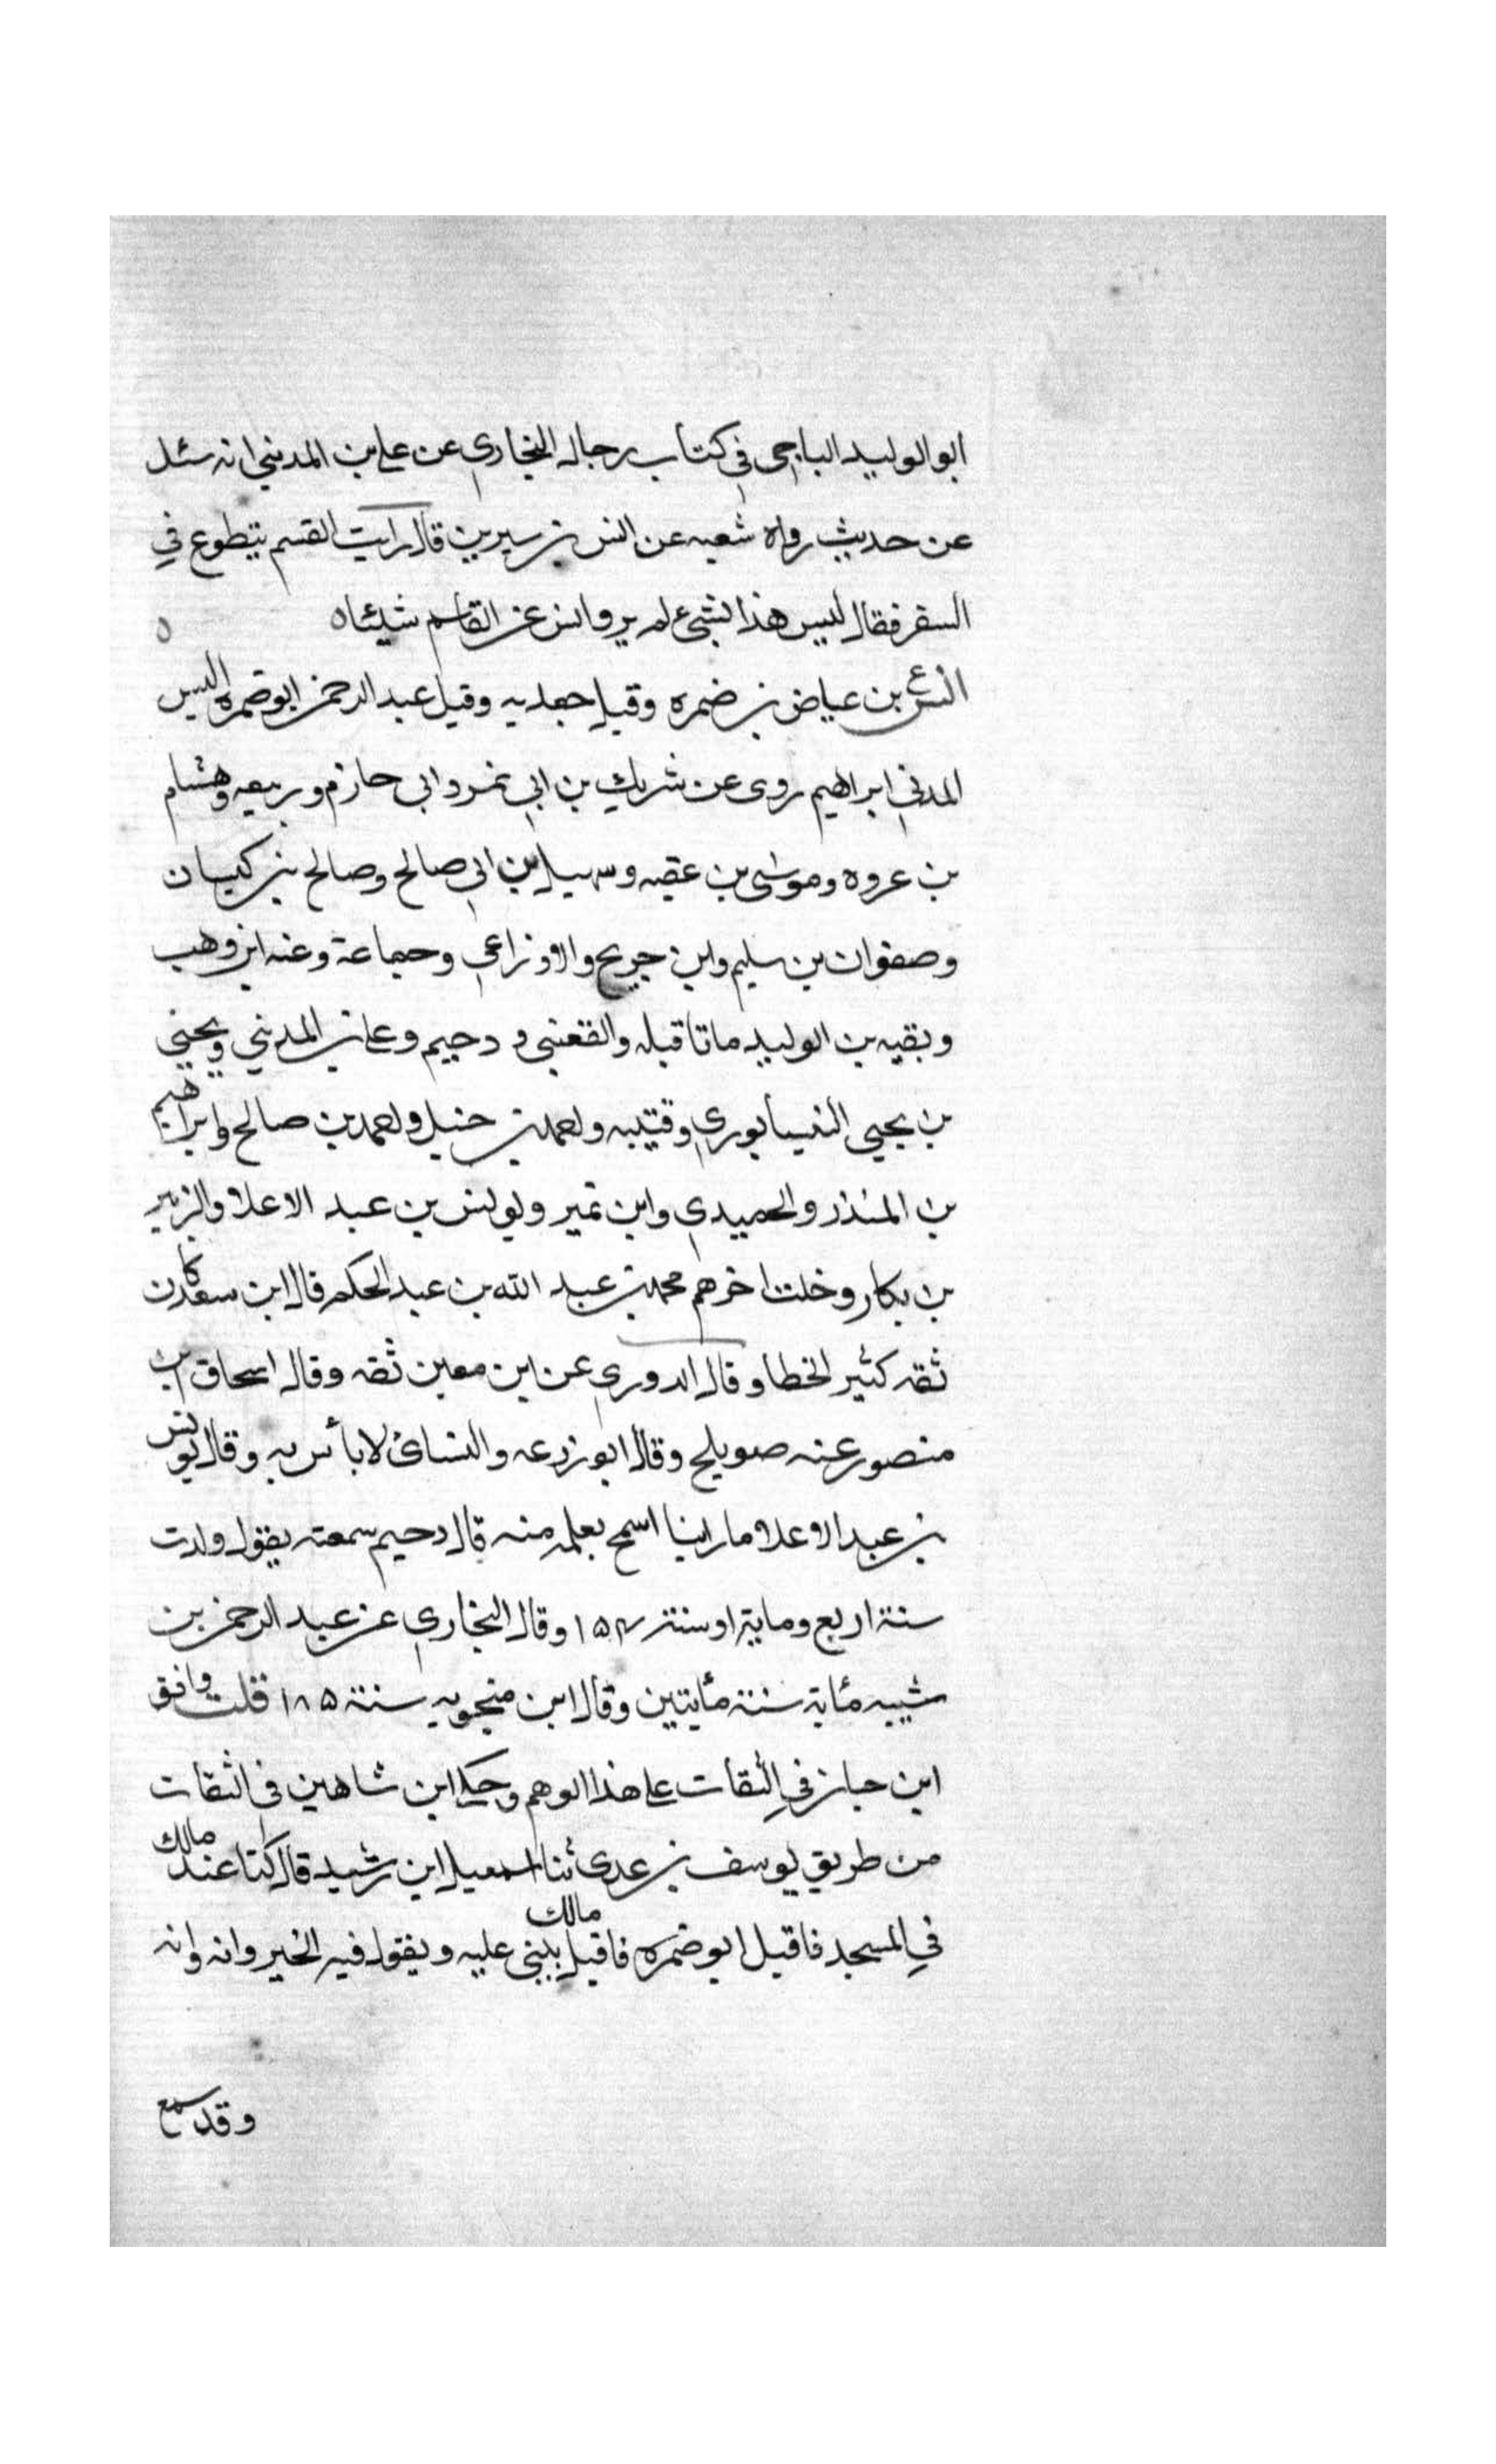 ابو الوليد الباجي في كتاب رجال البخاري عن علي بن المديني انه سئل
عن حديث رواه شعبه عن انس بن سيرين قال رايت القسم يتطوع في
السفر فقال ليس هذا بشي لم يرو انس عن القاسم شيئا ه ه
ع
انس بن عياض بن ضمره وقيل جعدبه وقيل عبد الرحمن ابو ضمره الليس
المدني ابراهيم روى عن شريك بن ابي نمر وابي حازم وربيعه وهشام
بن عروه وموسى بن عقبه وسهيل بن ابي صالح وصالح بن كيسان
وصفوان بن سليم وابن جريج والاوزاعي وجماعة وعنه ابن وهب
وبقيه بن الوليد ماتا قبله والقعنبي و دحيم وعلي بن المديني ويحيي
بن يحيي النيسابوري وقتيبه واحمد بن حنبل واحمد بن صالح وابراهيم
بن المنذر والحميدي وابن نمير ويونس بن عبد الاعلا والزبير
بن بكار وخلت اخرهم محمد بن عبد الله بن عبد الحكم قال ابن سعد كان
ثقه كثير الخطا وقال الدوري عن ابن معين ثقه وقال اسحاق بن
منصور عنه صويلح وقال ابو زرعه والنسائ لا بأس به وقال يونس
بن عبد الاعلا ما راينا اسمح بعلمه منه قال دحيم سمعته يقول ولدت
سنة اربع وماية او سنة ١٥٤ وقال البخاري عن عبد الرحمن بن
شيبه مأبة سنة مأيتين وقال ابن منجويه سنة ١٨٥ قلت وافق
ابن حبان في الثقات على هذا الوهم وحكى ابن شاهين في الثقات
من طريق يوسف بن عدى ثنا اسمعيل ابن رشيد قال كنا عند مالك
في المسجد فاقبل ابو ضمره فاقبل مالك يثني عليه ويقول فيه الخير وانه وانه
وقد سمع